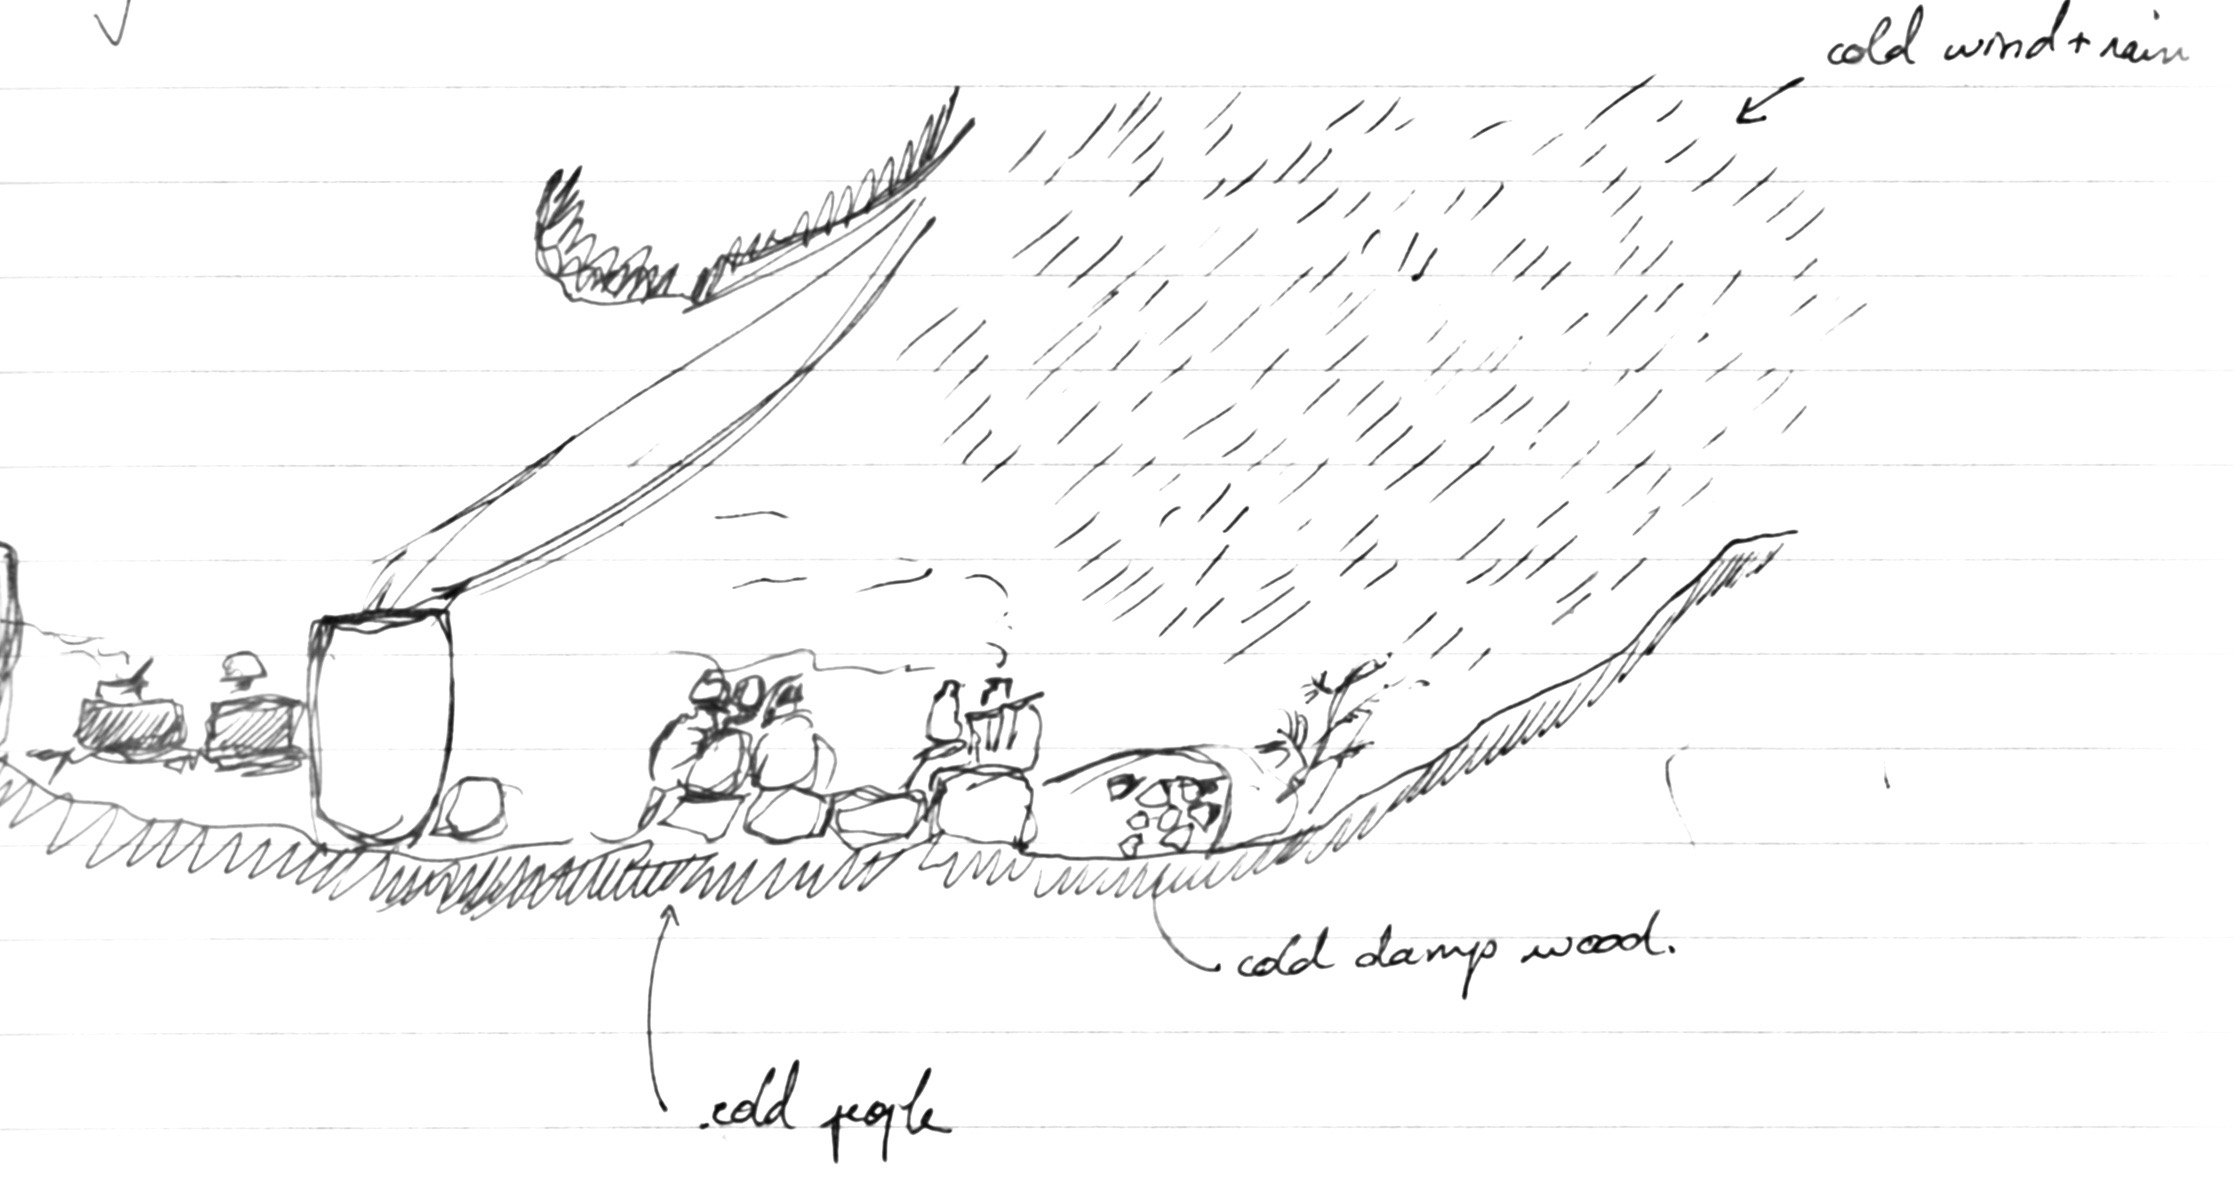 cold wind + rain
cold damp wood.
cold people